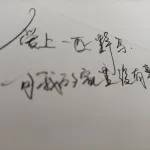 爱上一匹野马.
可我的家里没有